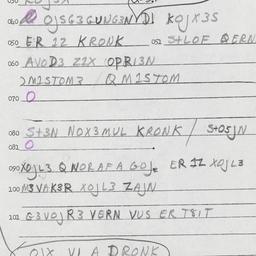 040 OJSG3GUNG3N DI KOJX3S
050 ER 1Z KRONK 052 S+LOF QERN
060 AVOD3 Z2X OPRI3N
)M1STOM3 QM1STOM
070 O
080 S+3N NOX3MUL KRONK / S+OSJN
081 O
090 XOJL3 QNORAFA GOJL ER 1Z XOJL3
100 M3VAK3R XOJL3 ZAJN
102 G3VOJR3 VERN VUS ER T8IT
OIX VI A DRONK